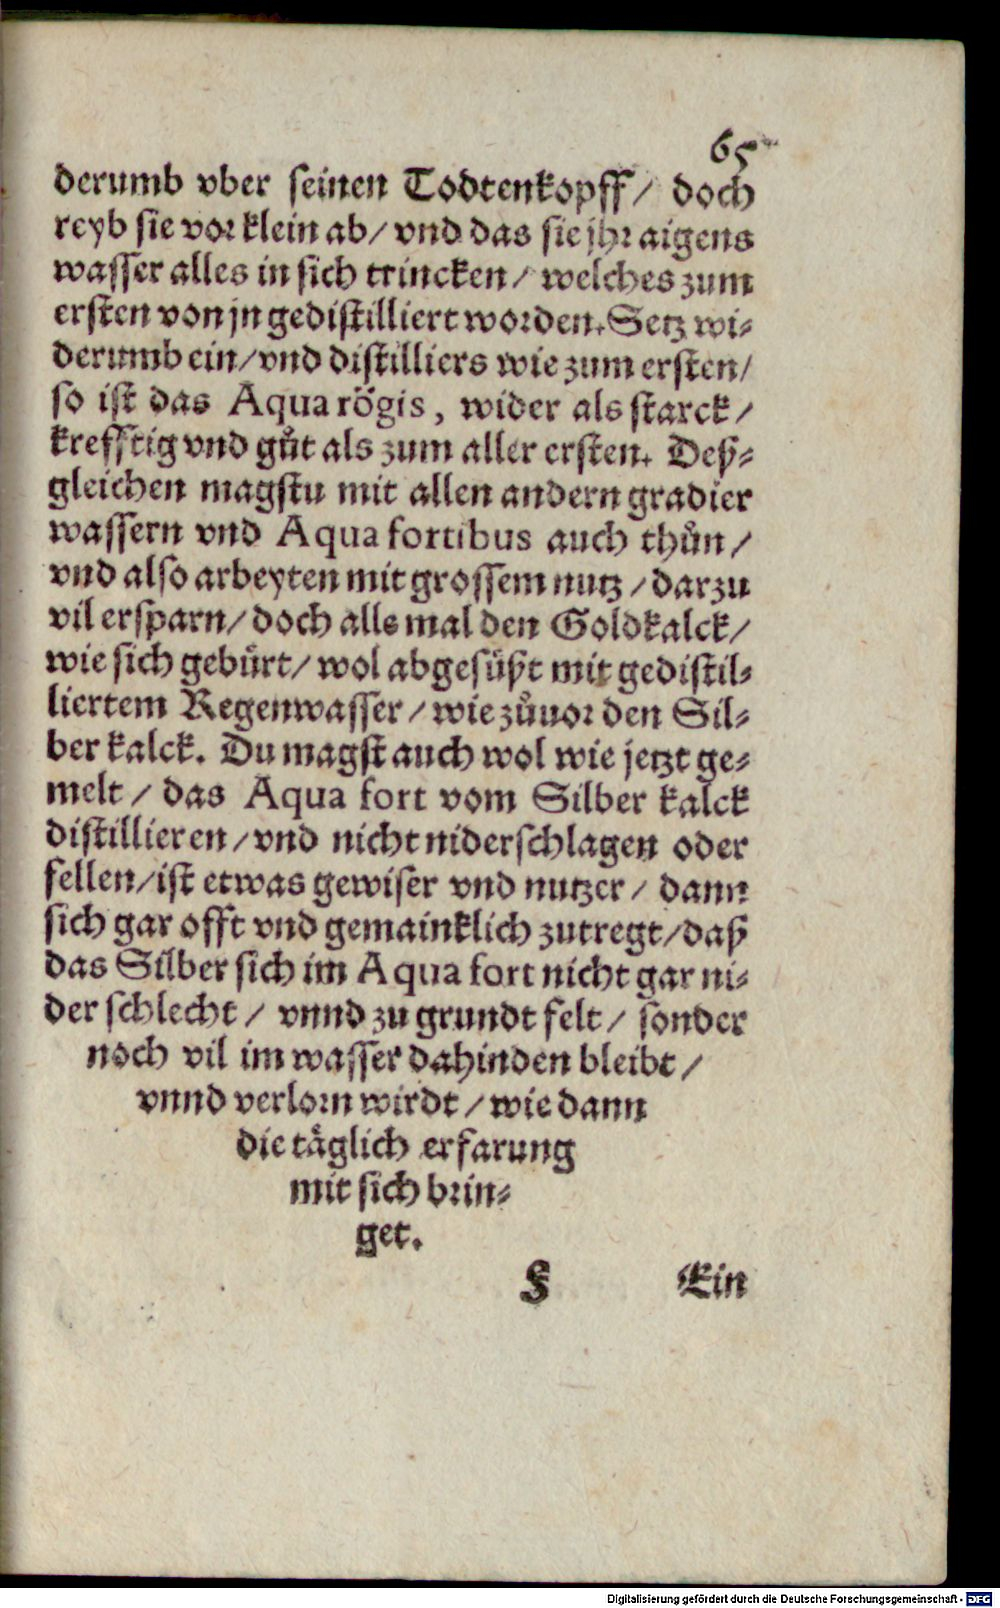 65
derumb vber seinen Todtenkopff/ doch
reyb sie vor klein ab/ vnd das sie jhr aigens
wasser alles in sich trincken/ welches zum
ersten von jn gedistilliert worden. Setz wi-
derumb ein/ vnd distilliers wie zum ersten/
so ist das Aqua rögis, wider als starck/
krefftig vnd gůt als zum aller ersten. Deß-
gleichen magstu mit allen andern gradier
wassern vnd Aqua fortibus auch thůn/
vnd also arbeyten mit grossem nutz/ darzu
vil ersparn/ doch alle mal den Goldkalck/
wie sich gebürt/ wol abgesüßt mit gedistil-
liertem Regenwasser/ wie zůuor den Sil-
ber kalck. Du magst auch wol wie jetzt ge-
melt/ das Aqua fort vom Silber kalck
distillieren/ vnd nicht niderschlagen oder
fellen/ ist etwas gewiser vnd nutzer/ dann
sich gar offt vnd gemainklich zutregt/ daß
das Silber sich im Aqua fort nicht gar ni-
der schlecht/ vnnd zu grundt felt/ sonder
noch vil im wasser dahinden bleibt/
vnnd verlorn wirdt/ wie dann
die täglich erfarung
mit sich brin-
get.
§ Ein
Digitalisierung gefördert durch die Deutsche Forschungsgemeinschaft - DFG